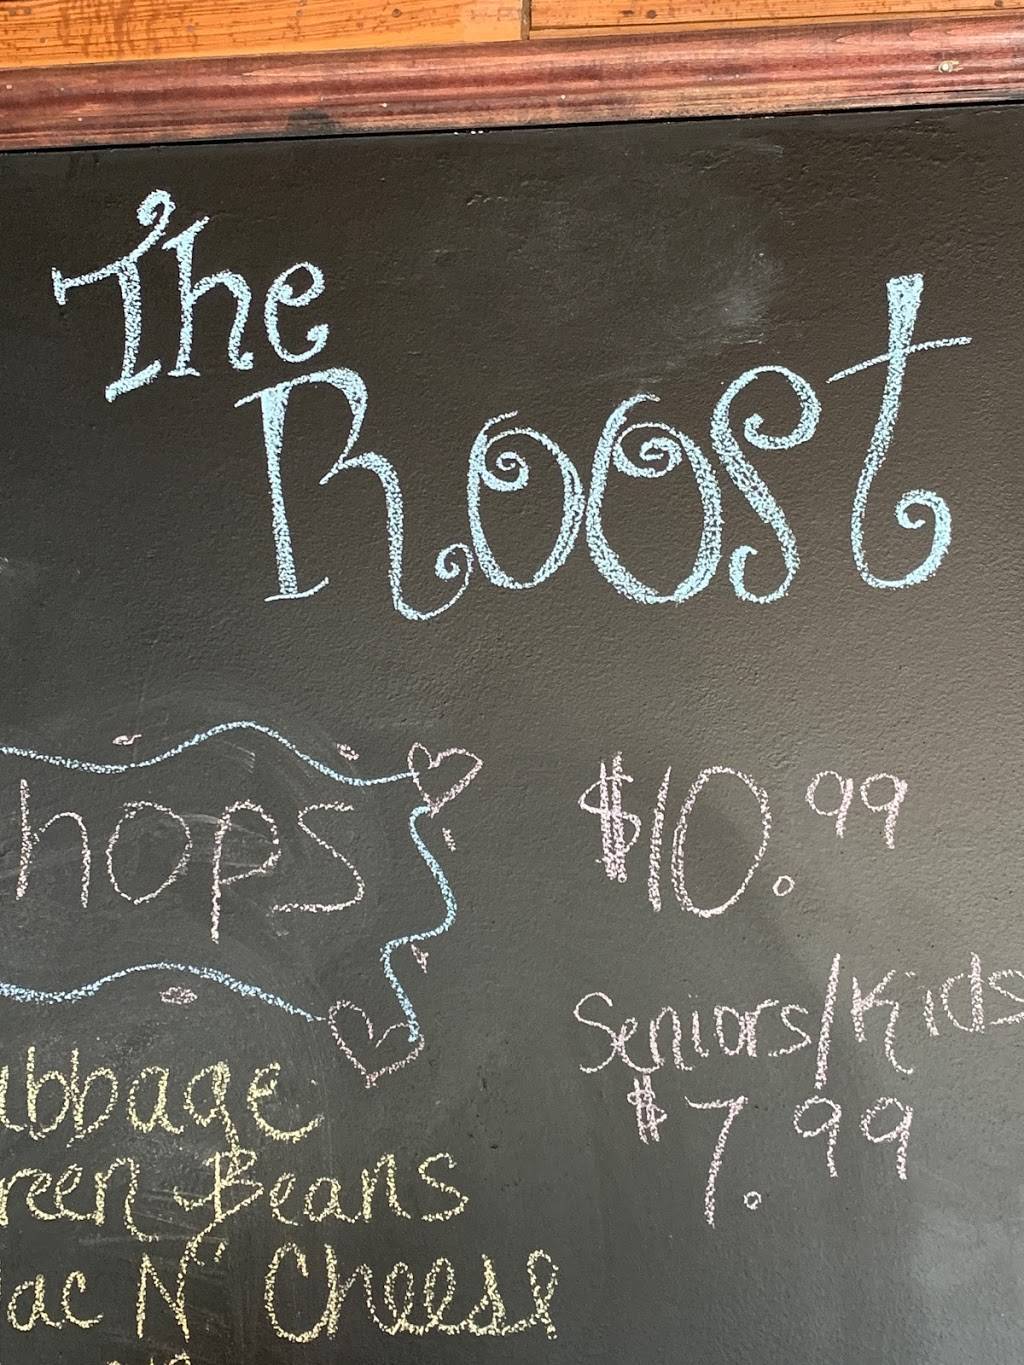 The
Roost
hops $10.99
Seniors/Kids
$7.99
abbage
reen Beans
ac N' Cheese